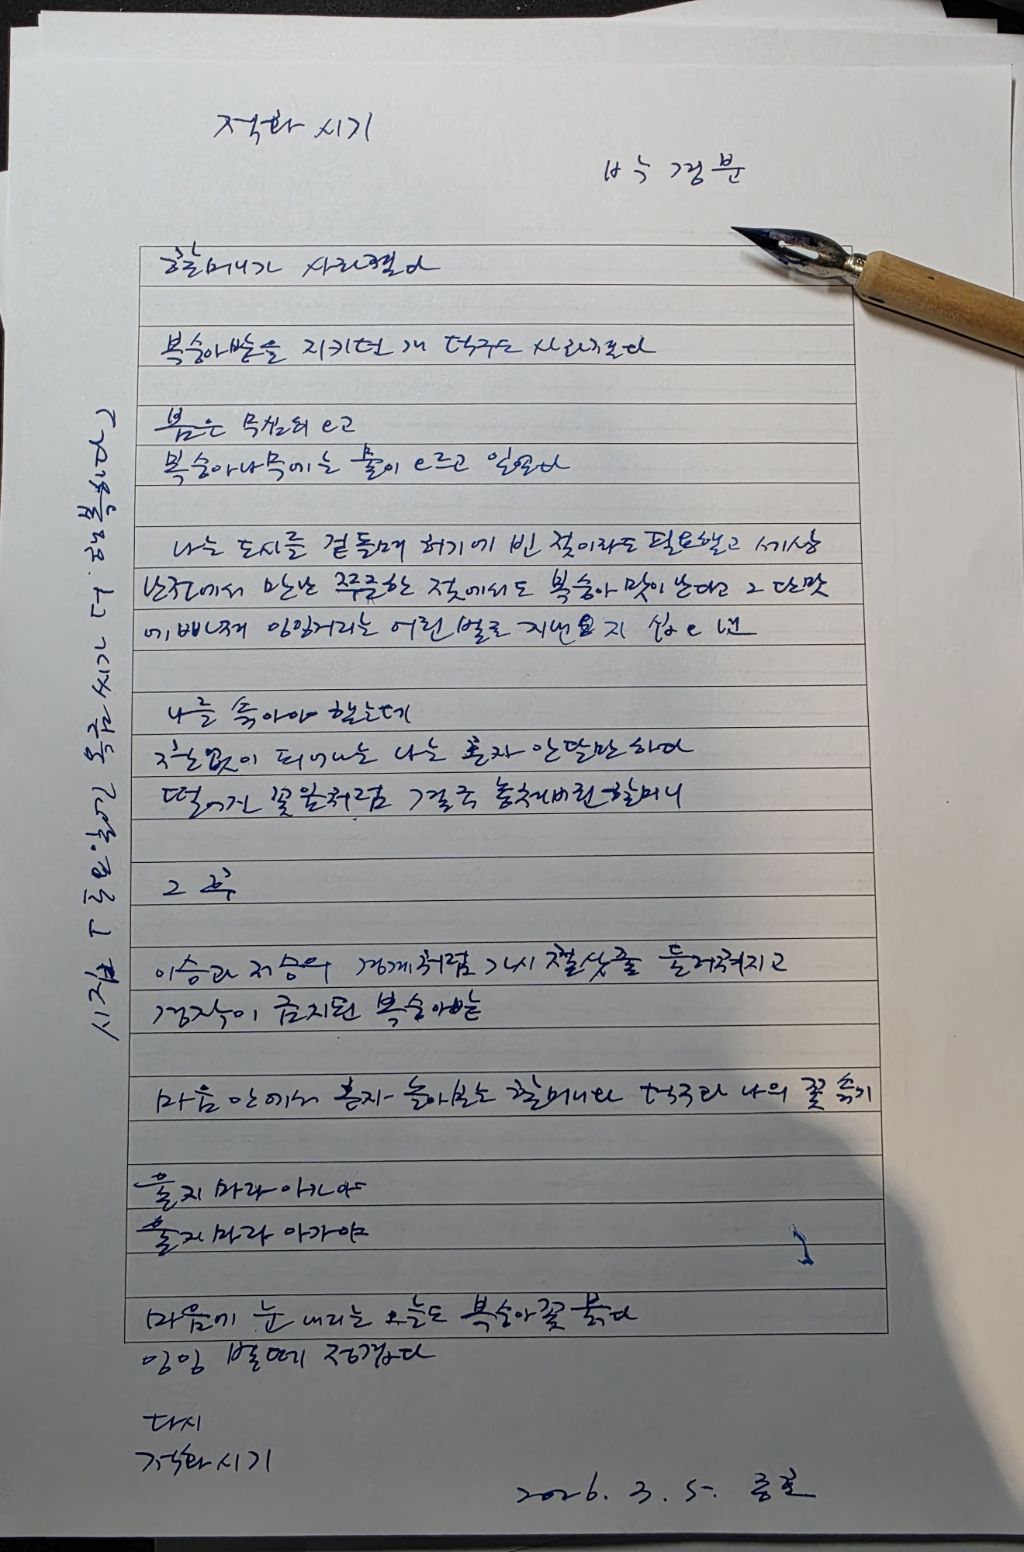 적화 시기
박경분
할머니가 사라졌다
복숭아밭을 지키던 개 덕구도 사라졌다
봄은 무심히 오고
복숭아나무에는 물이 오르고 있었다
나는 도시를 겉돌며 허기에 빈 젖이라도 필요했고 세상
난전에서 만난 쭈글한 젖에서도 복숭아 맛이 난다고 그 단맛
에 빠져 잉잉거리는 어린 벌로 지낸 요지 십 오 년
나를 솎아야 했는데
철없이 피어나는 나는 혼자 안달만 하다
떨어진 꽃잎처럼 결국 놓쳐버린 할머니
그 후
이승과 저승의 경계처럼 가시 철삿줄 둘러쳐지고
경작이 금지된 복숭아밭
마음 안에서 혼자 놀아보는 할머니와 덕구와 나의 꽃 솎기
울지 마라 아가야
울지 마라 아가야
마음에 눈 내리는 오늘도 복숭아꽃 붉다
잉잉 벌떼 정겹다
다시
적화시기
2026. 3. 5.
시집